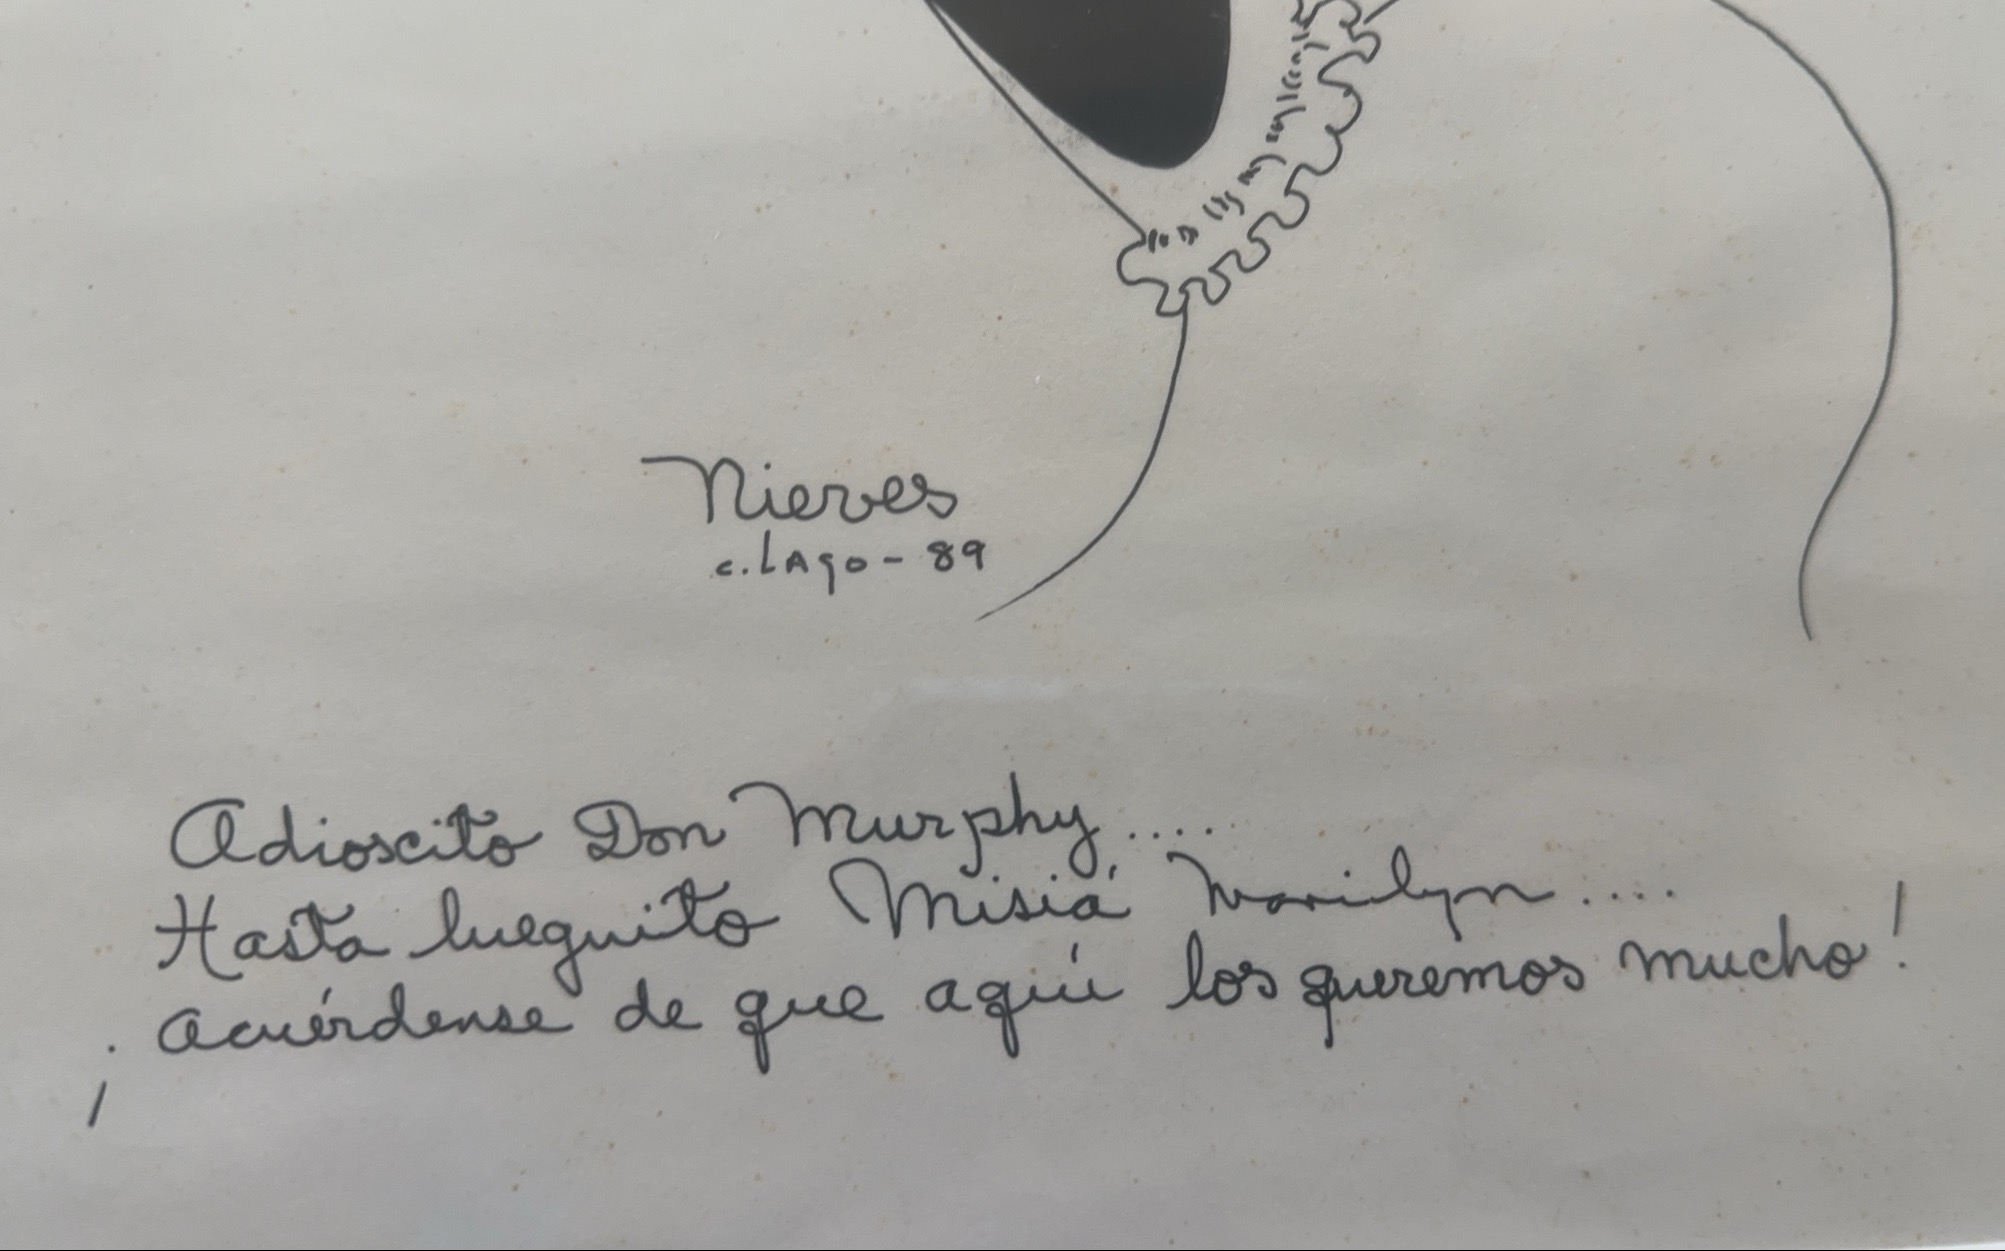 Nieves
c. Lago - 89
Adioscito Don Murphy.....
Hasta lueguito Misiá Marilyn....
¡Acuérdense de que aquí los queremos mucho!